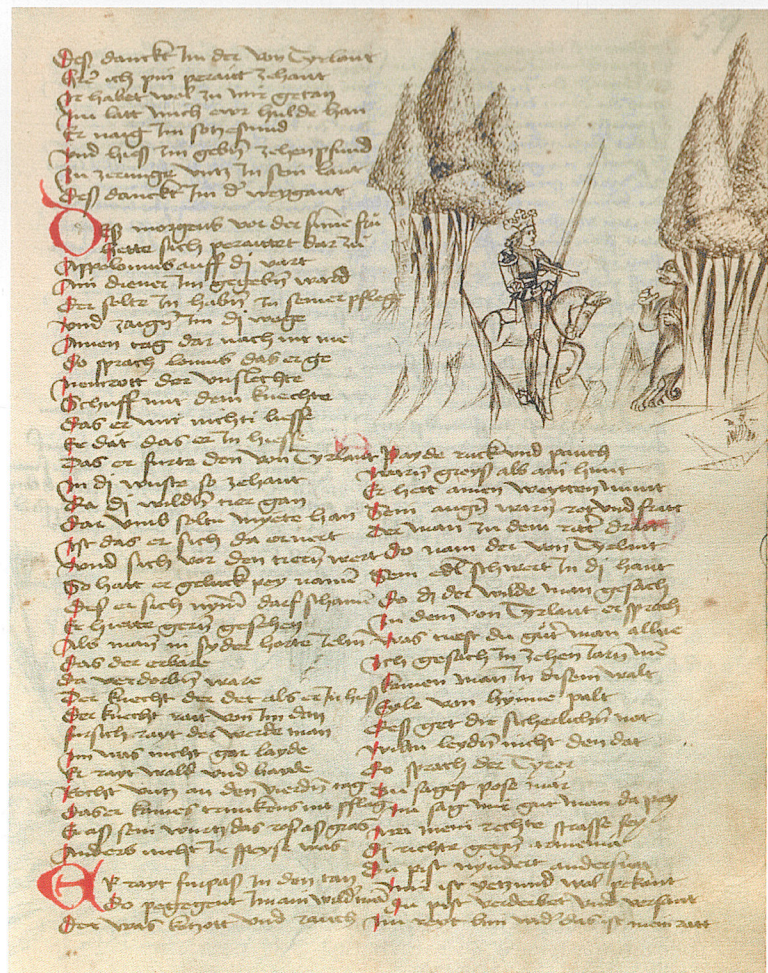 Des danckt Im der von Tyrlant
Er ich pin perait zehant
Ir habet wol zu mir getan
Nu latt mich ewr hulde han
Er naig Im so
Vnd hiess Im gebn zehen pfund
Zu zerunge vntz In sein lant
Des danckt Im d weygant
Des morgens vor der sunne fru
Hette sich peraittet dar zu
Appolonius auff dj vart
Ain diener Im gegebn ward
Der solte In habn In seiner pflege
Vnd zaign Im dj wege
Ainen tag dar nach nit me
So sprach das er ge
der vnslechte
Schuff mit dem knechte
Das er mit nichti liesse
Er dat das er In hiesse
Das er furte den von Tyrlant
In dj wuste so zehant
Da dj wildn tier gan
Dar vmb solte myete han
Ist das er sich da ernert
Vnd sich vor den tiern wert
So hatt er geluck pey namn
Des er sich nymmer darf schamen
Er hiette gern gesehen
Als man in syder horte
Das der erbare
Da verdorbn ware
Der knecht der det als er In hiess
Der knecht rait von Im dan
fursich rayt der werde man
Im was nicht gar layde
Er rayt wald vnd hayde
Recht vntz an den vierdn tag
Das er kaines trinckens nit pflag
Er ass sein wurtz das ros ass gras
Anders nicht Ir speyse was
Er rayt furpas In den tan
Do pegegent Im ain wild man
Der was kotzott vnd rauch
Payde ruck vnd pauch
Warn greyss als ain hunt
Er hett ainen weytten munt
Sein augn warn rot vnd
Der man zu dem ritt drat
Do nam der von Tyrlant
Sein edl schwert In dj hant
Do dj der wilde man gesach
Zu dem von Tyrlant er sprach
Was du gut man alhie
Ich gesach In zehen Iarn nie
kainen man In disem walt
Eyle von hynne palt
Des get die sicherlichn not
Wiltu leydn nicht den dot
Do sprach der Tyrer
Du sagest pose mär
Nu sag mir gut man da pey
Wa mein rechte strasse sey
Dj richte gegn armenia
Du pist nyndert anderswa
Mir ist yetzund wol pekant
Du pist verderbet vnd versant
Nu reyt hin wid das ist mein ratt